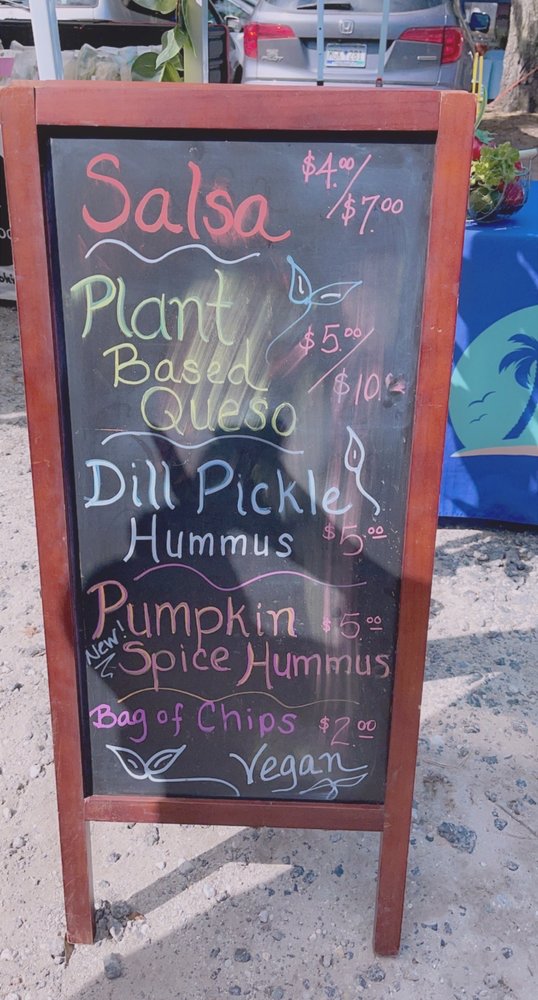 Salsa $4.00/
$7.00
Plant
Based $5.00/
Queso $10
Dill Pickle
Hummus $5.00
Pumpkin $5.00
New! Spice Hummus
Bag of Chips $2.00
Vegan